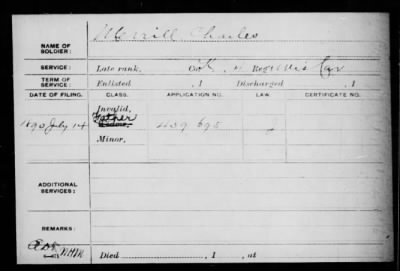 Merrill Charles
NAME OF SOLDIER:
SERVICE:
Late rank, Co. , Reg't Wis Cav
TERM OF SERVICE:
Enlisted , 1 Discharged , 1
DATE OF FILING. CLASS. APPLICATION NO. LAW. CERTIFICATE NO.
Invalid,
1890 July 14 Father 459 695
Widow,
Minor,
ADDITIONAL SERVICES:
REMARKS:
Died , 1 , at